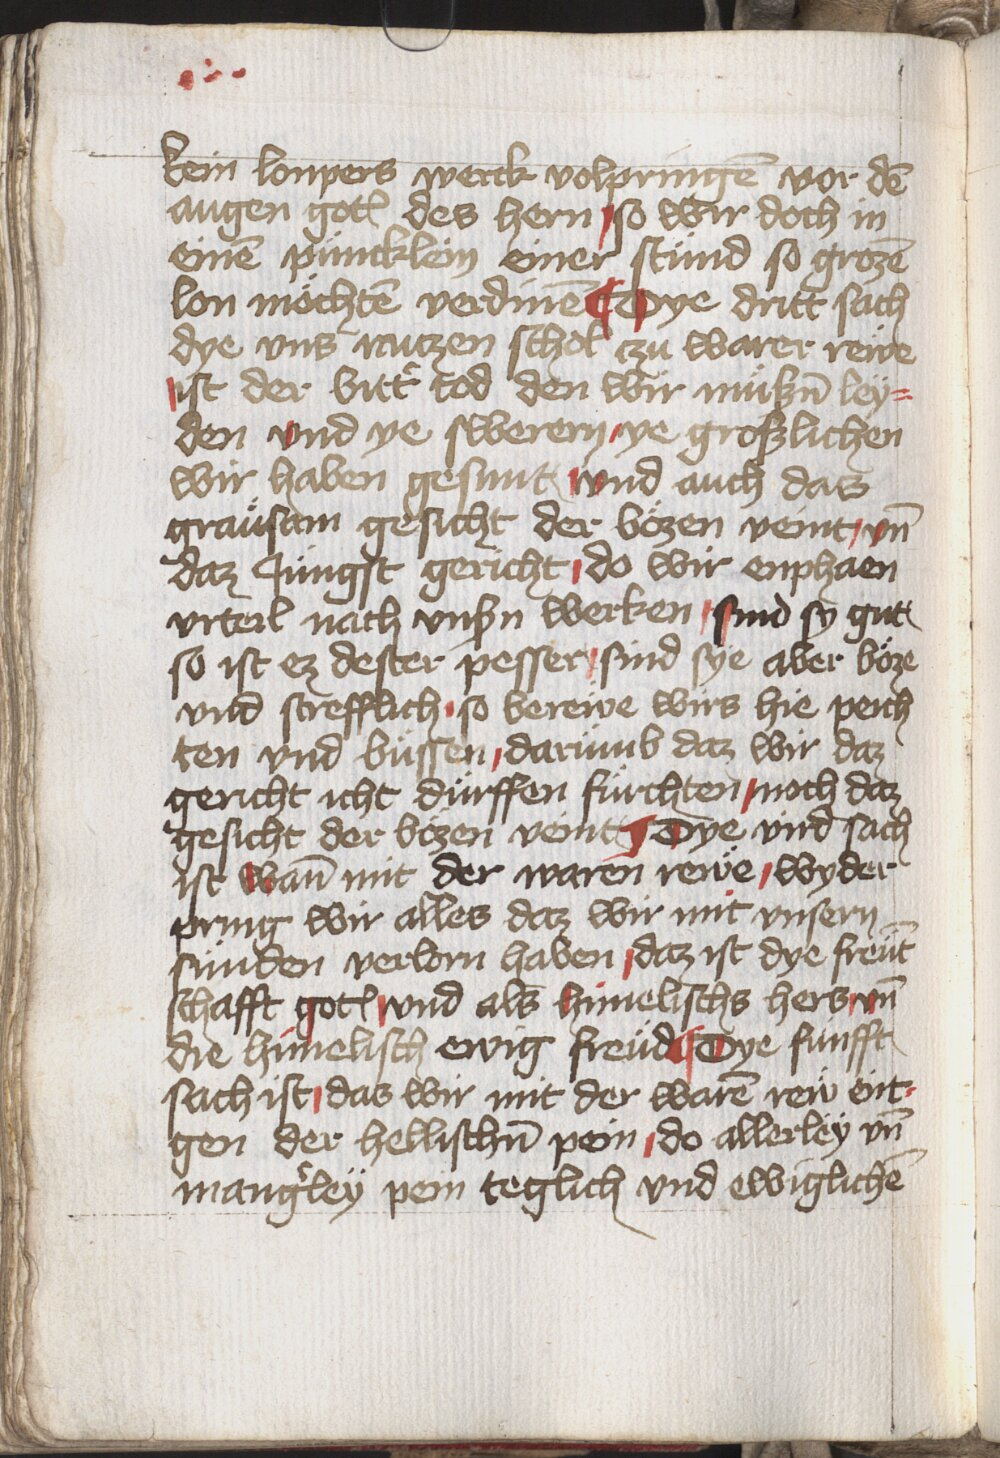 kein lonpers werck volpringē vor dē
augen gotꝭ des hern / so wir doch in
einē püncklein einer stünd so grozē
lon möchtē verdinē ¶ Dye dritt sach
dye vns nutzen schol czu warer reẅe
/ ist der bitt̕ tod den wir müßn̄ leÿ=
den vnd ye swerern / ye größlichen
wir haben gesunt / vnd auch das
graüsam gesicht der bözen veint / vn̄
daz Jüngst gericht / do wir enphaen
vrteil nach vnßn werken / sind sy gut
so ist ez dester pesser / sind sye aber böze
vnd strefflich / so bereiwe wirs hie peich
ten vnd büssen / darümb daz wir daz
gericht icht dürffen fürchten / noch daz
gesicht der bözen veint ¶ Dye vird sach
ist wan̄ mit der waren reẅe / wyder
pring wir alles daz wir mit vnsern
sünden verlorn haben / daz ist dye freüt
schafft gotꝭ / vnd als himelischs hers / vn̄
die himelisch ewig freüd ¶ Dye funfft
sach ist / das wir mit der warē reẅ ent-
gen der hellischn̄ pein / do allerleÿ vn̄
mang̕leÿ pein teglich vnd ewiglichē